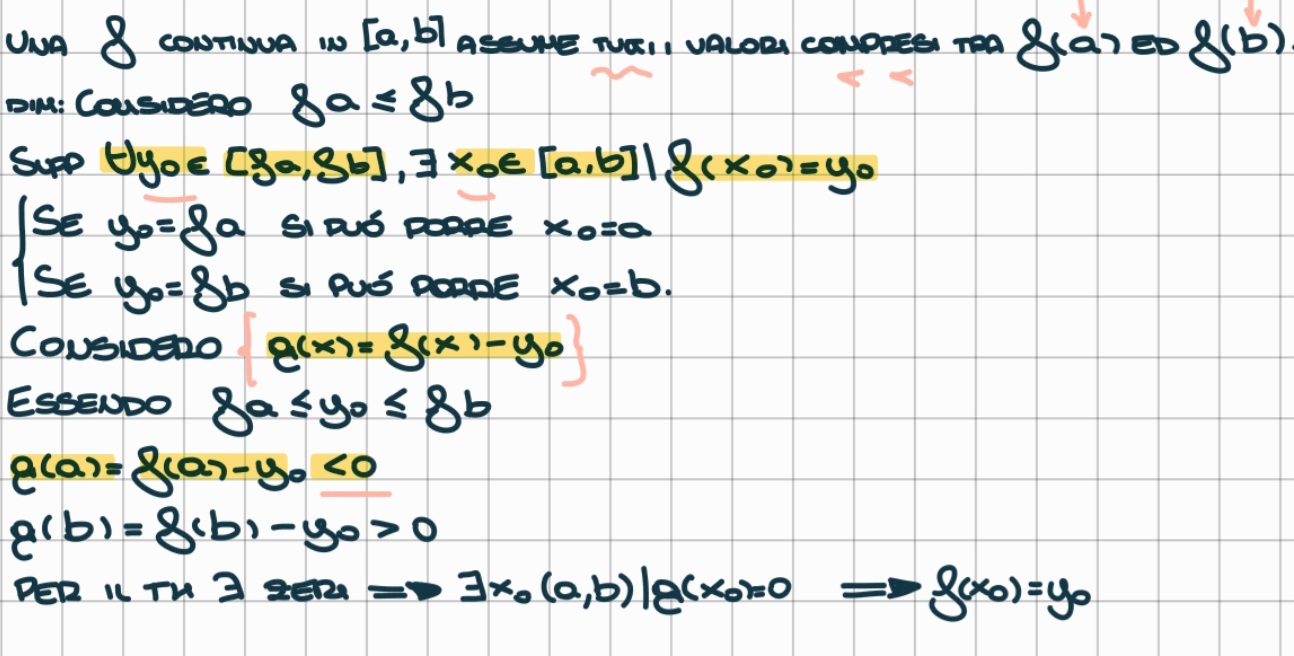 UNA f CONTINUA IN [a,b] ASSUME TUTTI I VALORI COMPRESI TRA f(a) ED f(b).
DIM: CONSIDERO fa ≤ fb
SUPP ∀y₀∈ [fa,fb], ∃ x₀∈ [a,b] | f(x₀)=y₀
SE y₀=fa SI PUÓ PORRE x₀=a
SE y₀=fb SI PUÓ PORRE x₀=b.
CONSIDERO { g(x)= f(x)-y₀ }
ESSENDO fa ≤ y₀ ≤ fb
g(a)= f(a)-y₀ <0
g(b) = f(b) -y₀ > 0
PER IL TH ∃ ZERI ⟹ ∃x₀ (a,b) | g(x₀)=0 ⟹ f(x₀)=y₀